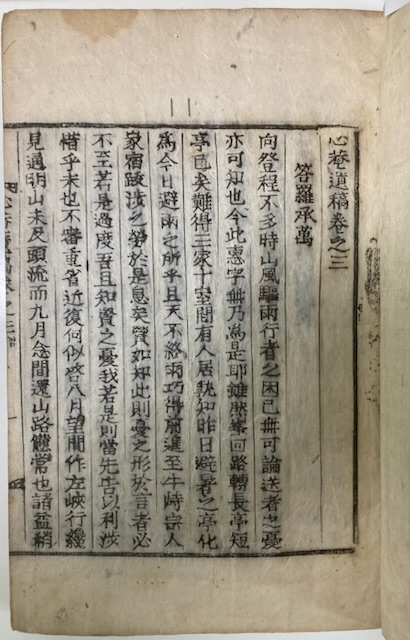 心菴遺稿卷之三
答羅承萬
向登程不多時山風驅雨行者之困已無可論送者之憂
亦可知也今此惠字無乃為是耶雖然峯回路轉長亭短
亭已矣難得三家十室間有人居孰知昨日避暑之亭化
為今日避雨之所乎且天不終雨巧得前進至牛峙宗人
家宿跋涉之勞於是息矣賢如知此則憂之形於言者必
不至若是過度吾且知賢之憂我若是則當先告以利涉
惜乎未也不審重省近復何似啓八月望間作左峽行纔
見過明山未及頭流而九月念間還山路憊常也諸益稍